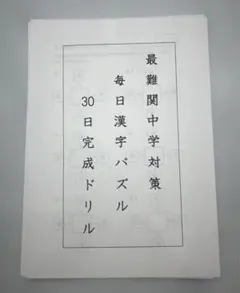 最難関中学対策
毎日漢字パズル
30日完成ドリル